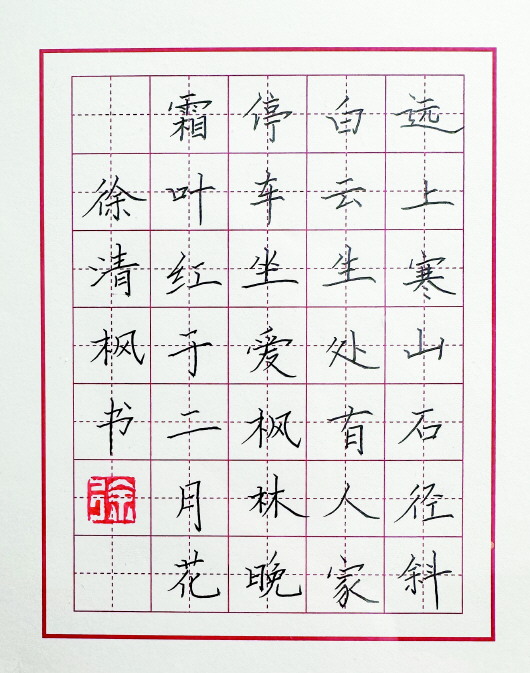 远上寒山石径斜
白云生处有人家
停车坐爱枫林晚
霜叶红于二月花
徐清枫书
徐